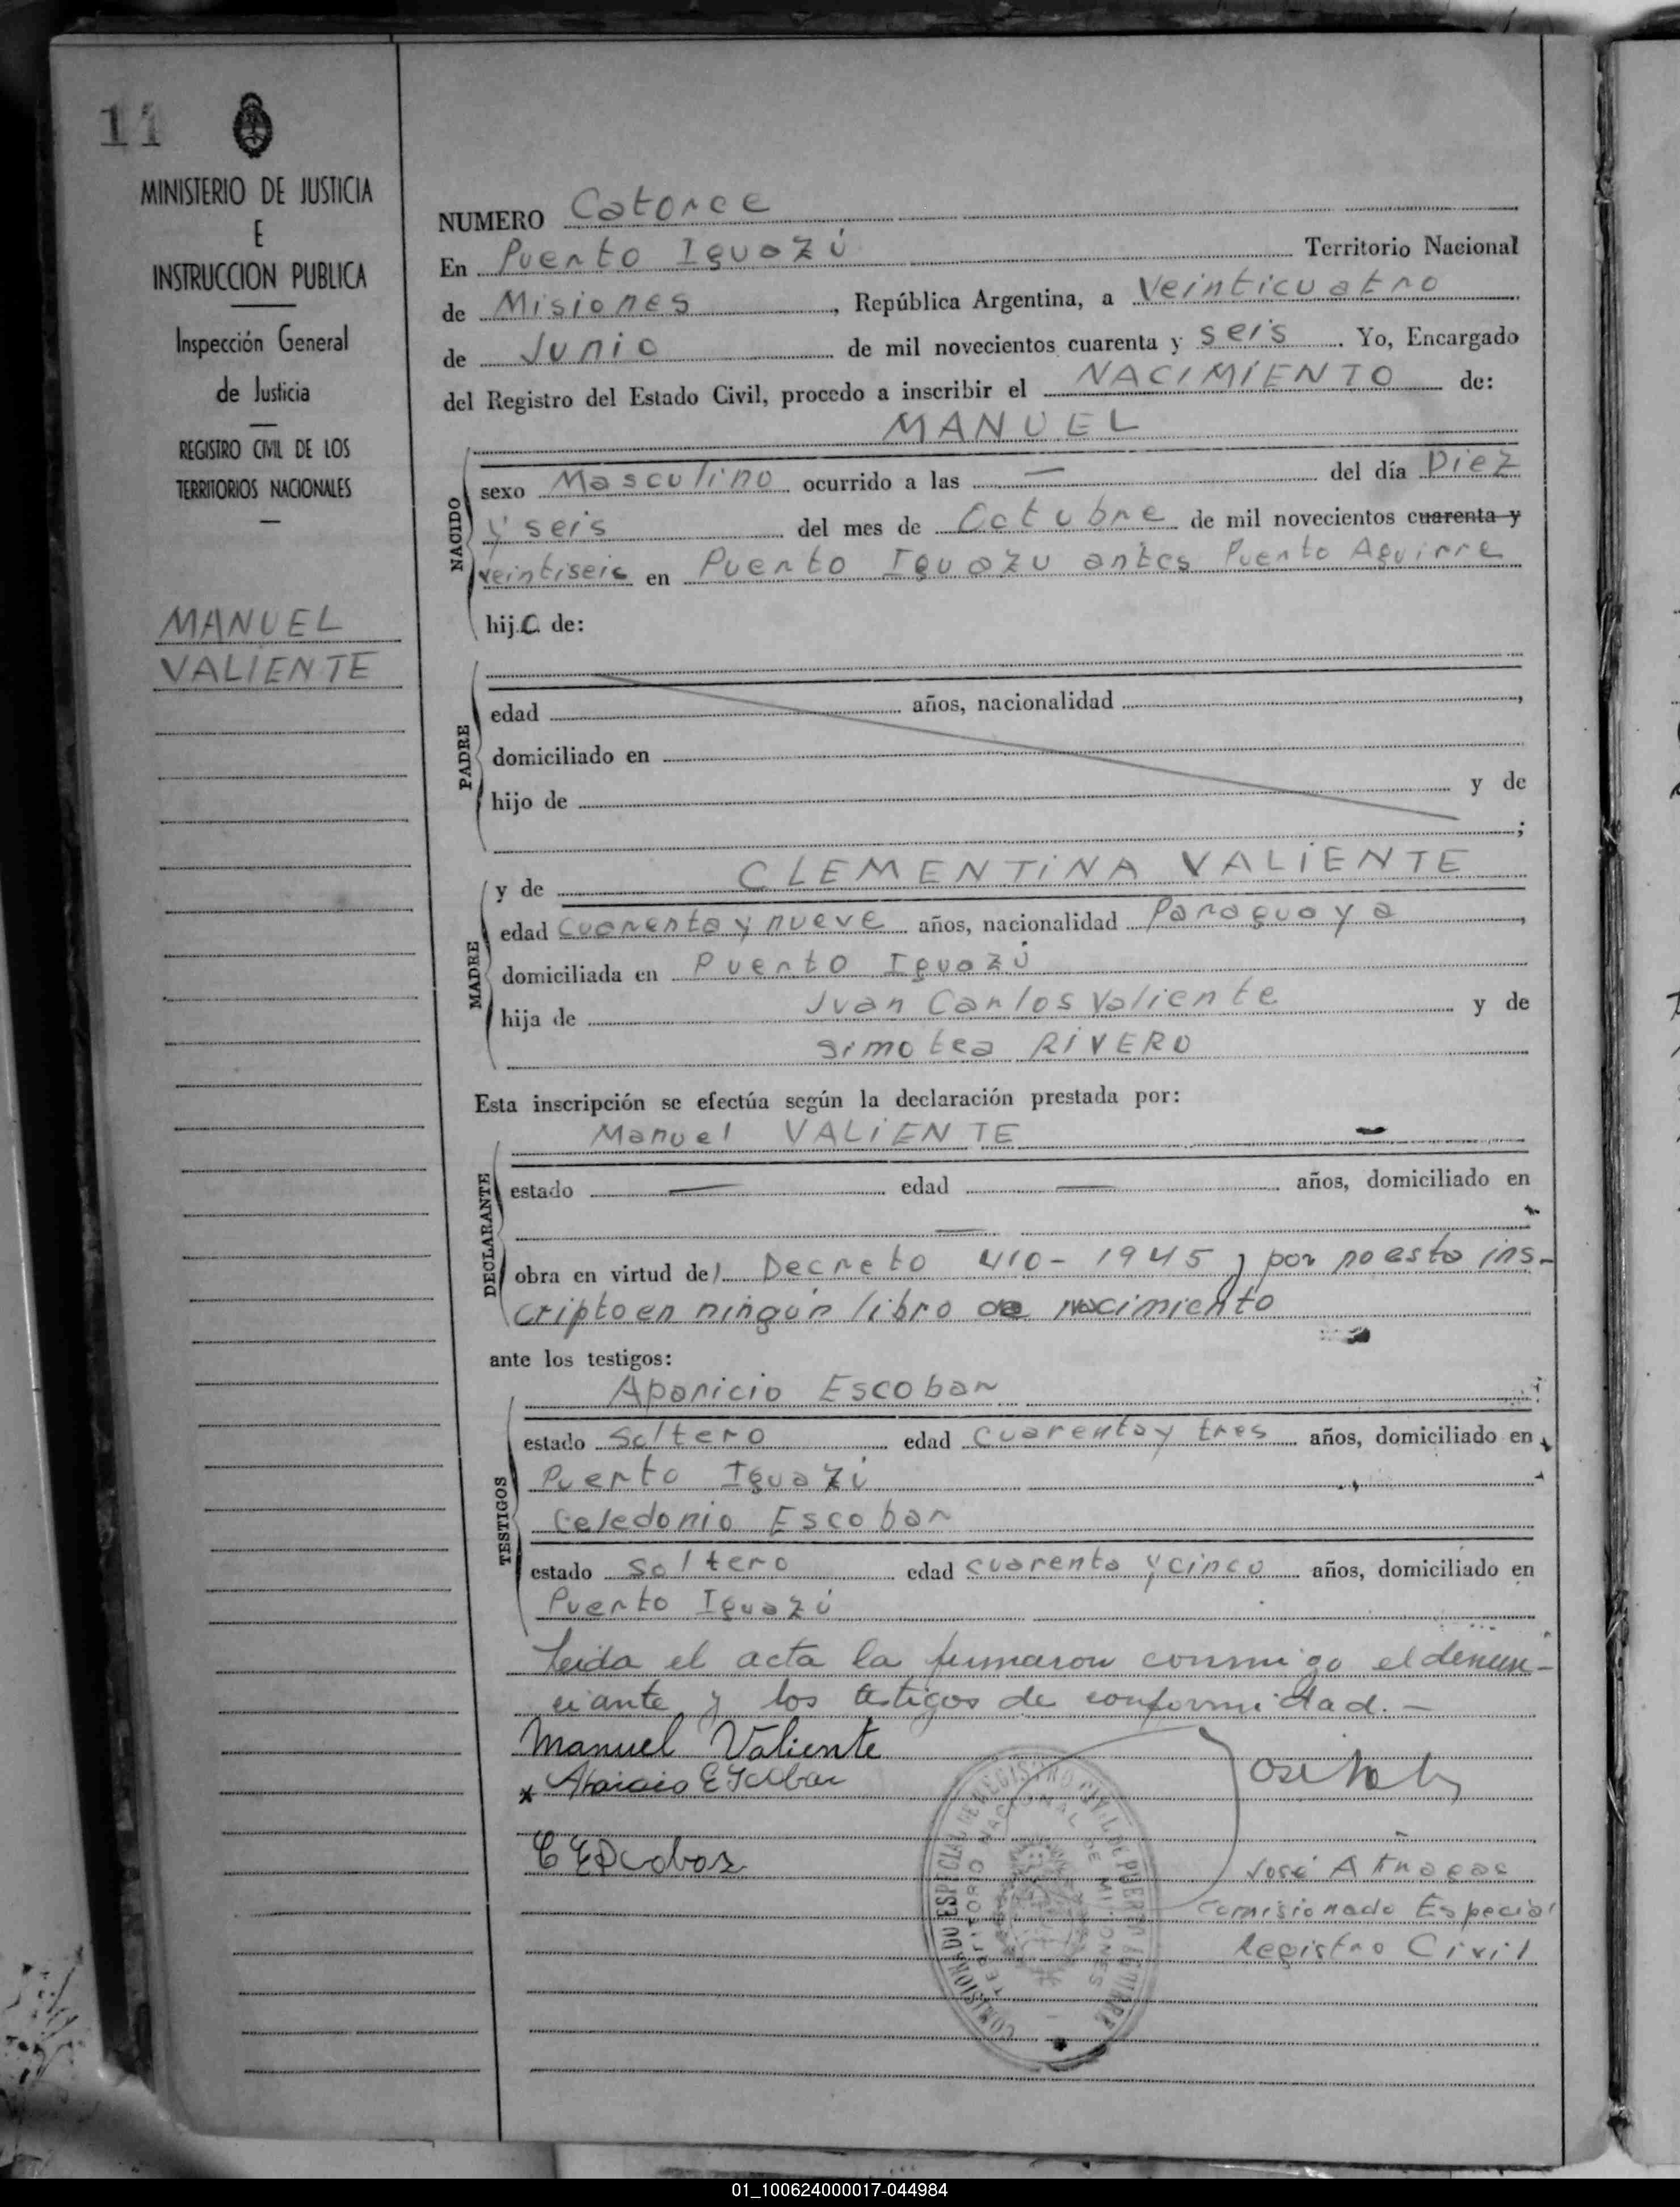 11
MINISTERIO DE JUSTICIA
E
INSTRUCCION PUBLICA
Inspección General
de Justicia
REGISTRO CIVIL DE LOS
TERRITORIOS NACIONALES
MANUEL
VALIENTE
NUMERO Catorce
En Puerto Iguazú Territorio Nacional
de Misiones, República Argentina, a Veinticuatro
de Junio de mil novecientos cuarenta y seis. Yo, Encargado
del Registro del Estado Civil, procedo a inscribir el NACIMIENTO de:
MANUEL
NACIDO
sexo Masculino ocurrido a las — del día Diez
y seis del mes de Octubre de mil novecientos cuarenta y
veintiseis en Puerto Iguazu antes Puerto Aguirre
hijo de:
PADRE
edad años, nacionalidad ,
domiciliado en
hijo de y de
;
MADRE
y de CLEMENTINA VALIENTE
edad Cuarenta y nueve años, nacionalidad Paraguaya,
domiciliada en Puerto Iguazú
hija de Juan Carlos Valiente y de
Simotea RIVERO
Esta inscripción se efectúa según la declaración prestada por:
DECLARANTE
Manuel VALIENTE —
estado — edad — años, domiciliado en
—
obra en virtud del Decreto 410-1945 y por no esta ins-
cripto en ningún libro de nacimiento
ante los testigos:
TESTIGOS
Aparicio Escobar
estado Soltero edad cuarenta y tres años, domiciliado en
Puerto Iguazú
Celedonio Escobar
estado soltero edad cuarenta y cinco años, domiciliado en
Puerto Iguazú
Leida el acta la firmaron conmigo el denun-
ciante y los testigos de conformidad.-
Manuel Valiente
Aparicio Escobar
C Escobar
José
Comisionado Especial
Registro Civil
COMISIONADO ESPECIAL DE REGISTRO CIVIL DE PUERTO AGUIRRE
TERRITORIO NACIONAL DE MISIONES
01_100624000017-044984